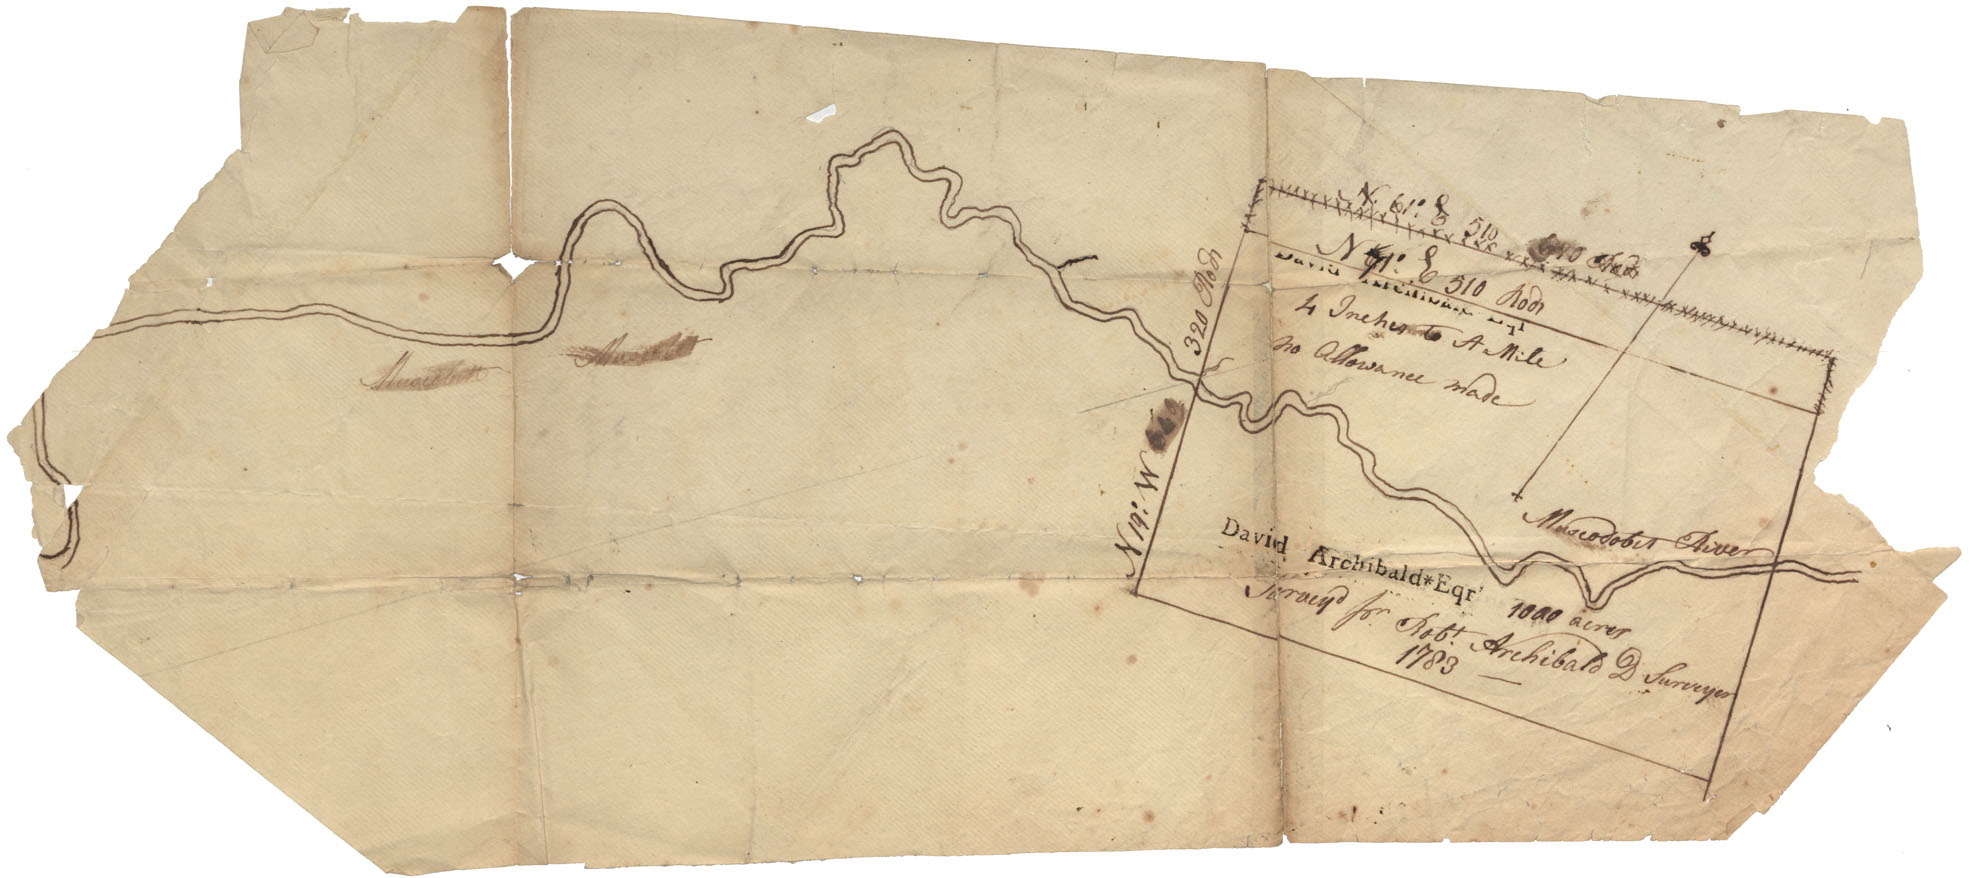 N. 61°. E 510 Rods
N 61°. E 510 Rods
David Archibald Eqr
4 Inches to A Mile
no Allowance made
320 Rods
N 19°. W
Muscodobit River
David Archibald*Eqr
1000 acres
Survey'd for Robt. Archibald D Surveyer
1783